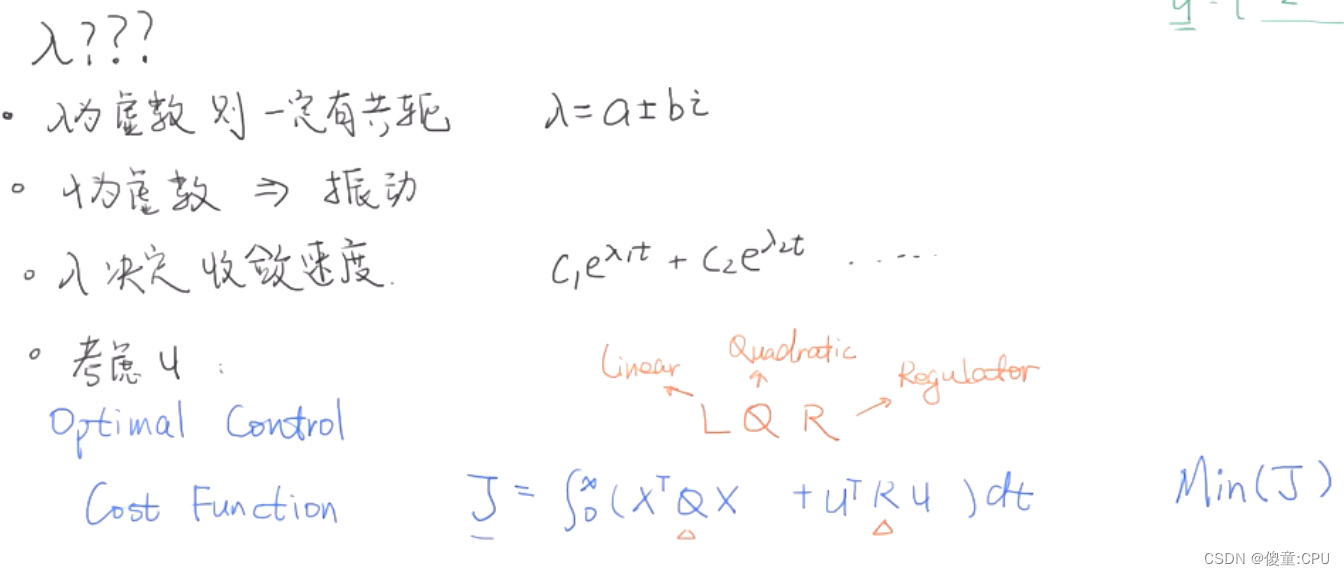 λ???
• λ为虚数 则一定有共轭 λ=a±bi
∘ 4为虚数 ⇒ 振动
∘ 入决定收敛速度. C₁e^λ₁t + C₂e^λ₂t ......
∘ 考虑 u :
Linear Quadratic Regulator
Optimal Control L Q R
Cost Function J = ∫₀^∞ (X^T Q X + u^T R u) dt Min(J)
CSDN @傻童:CPU